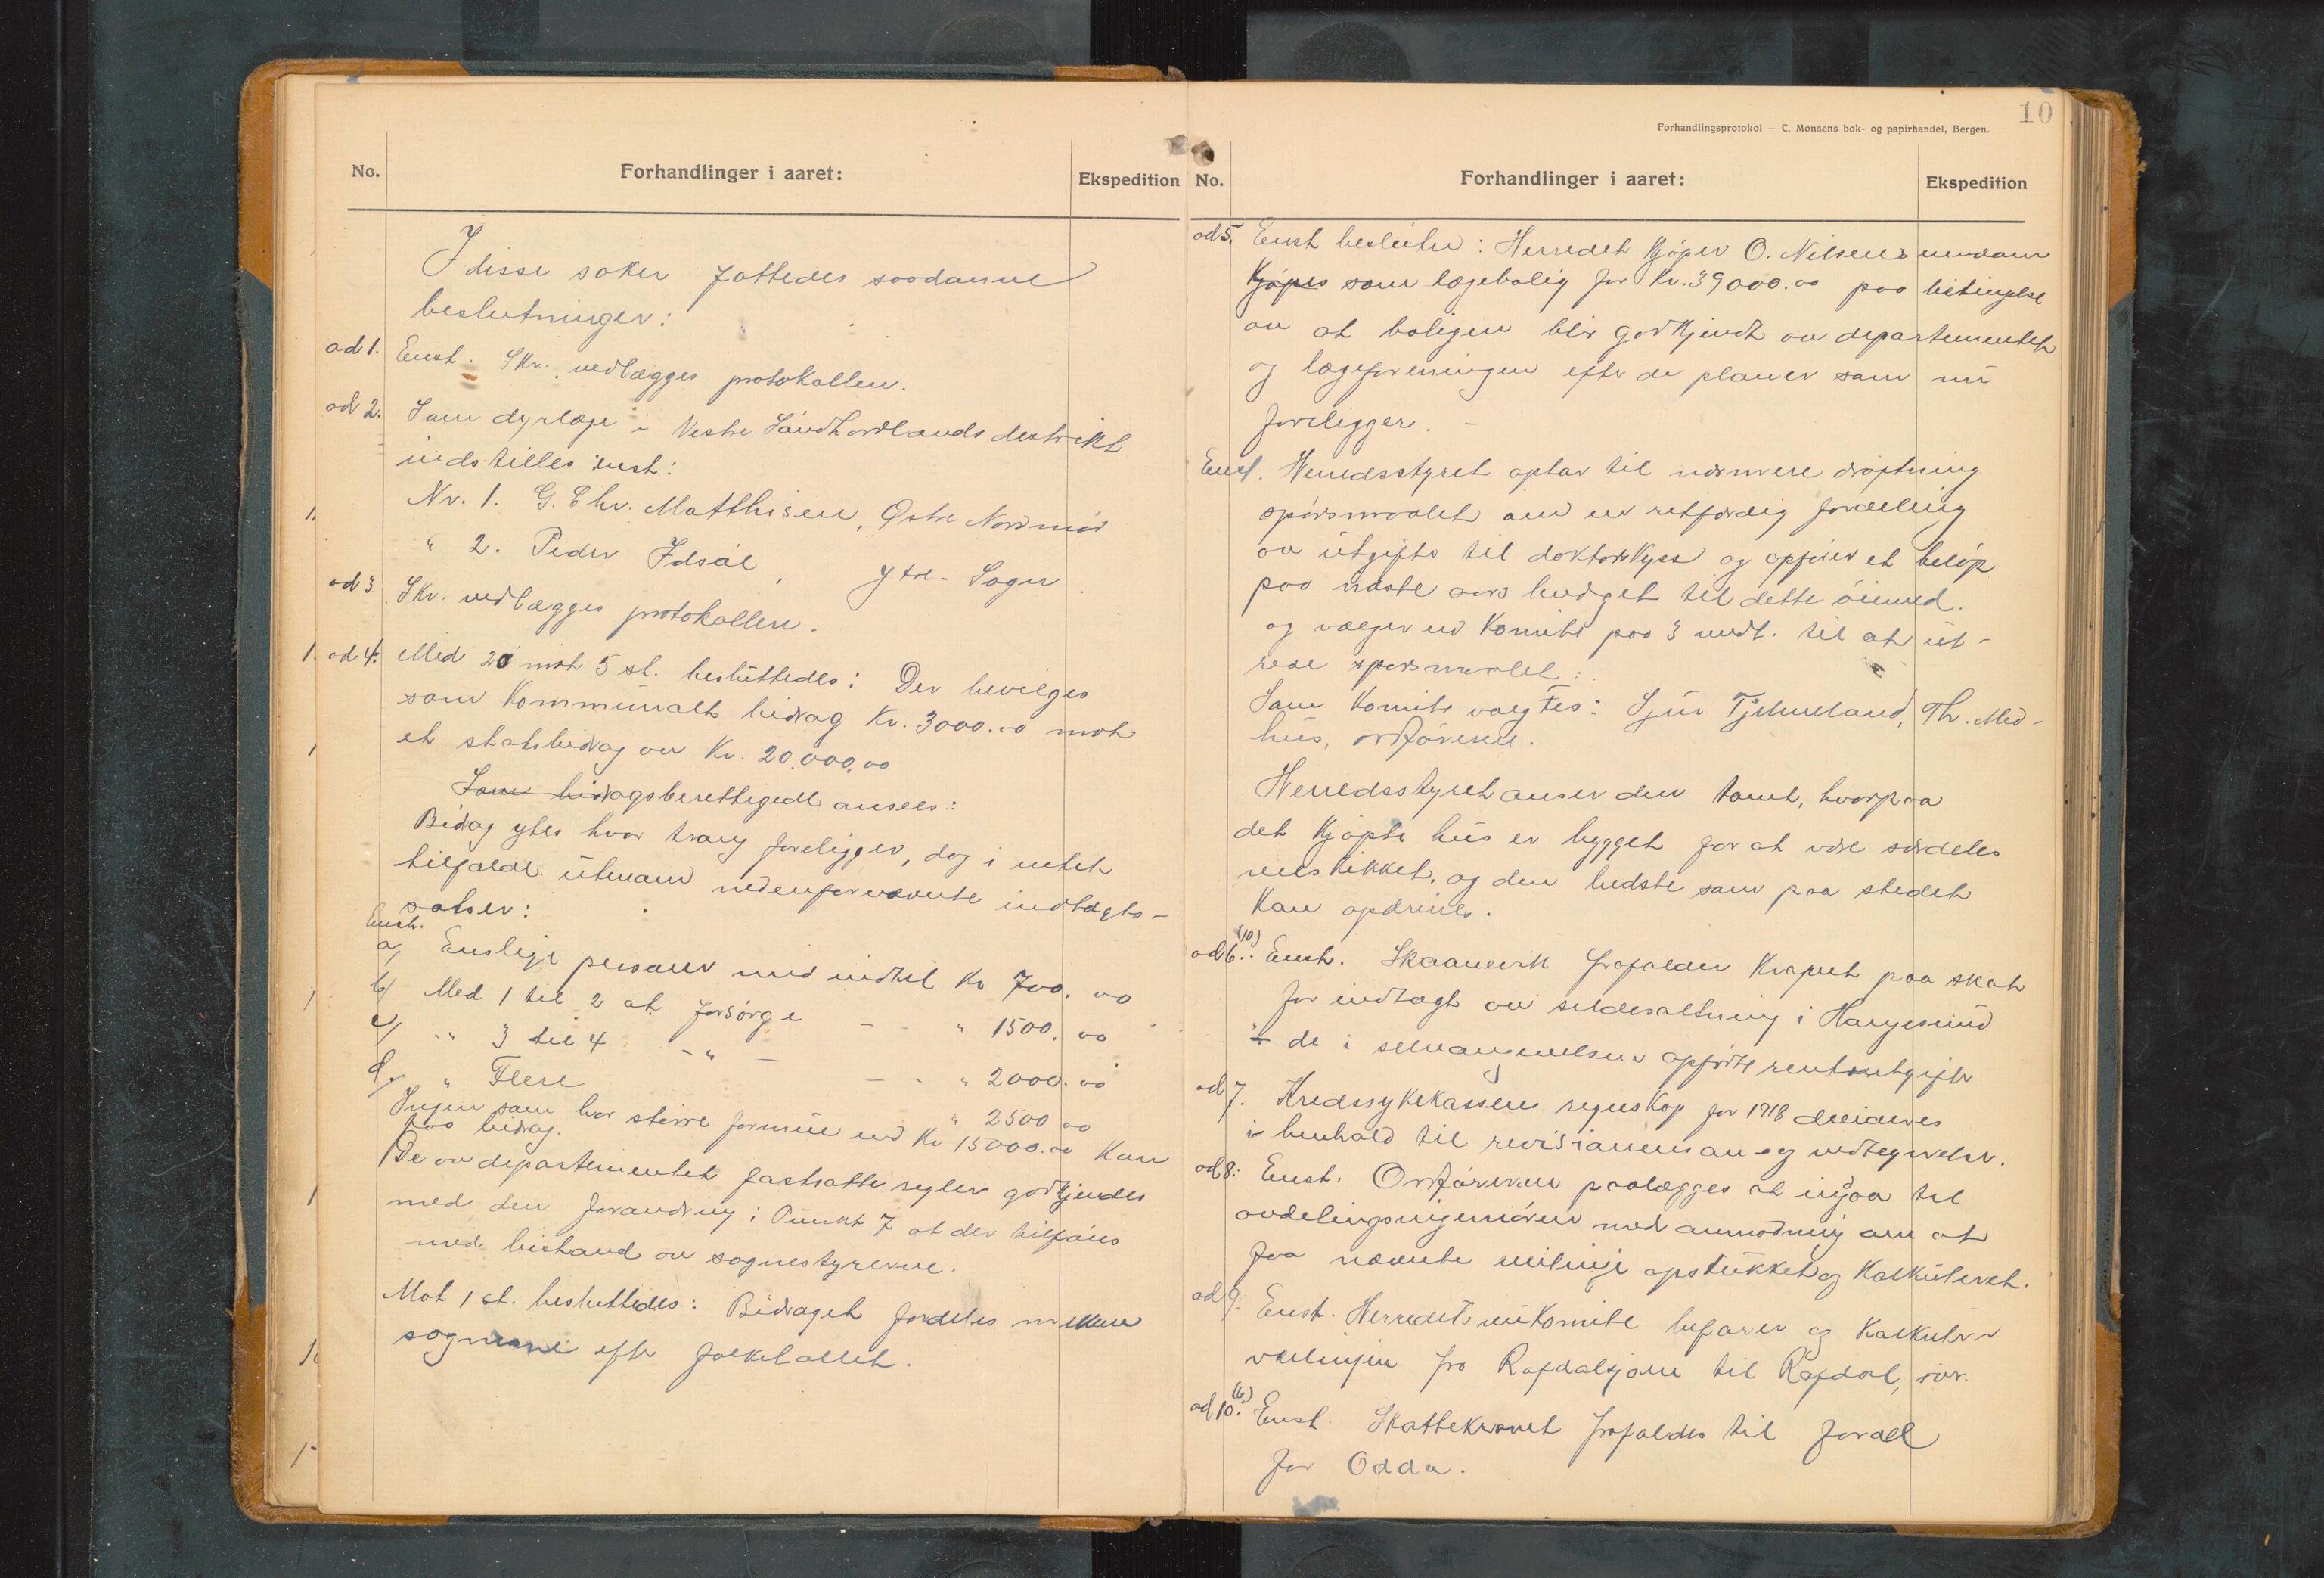 No.
Forhandlinger i aaret:
Ekspedition
I disse saker fattedes saadanne
beslutninger:
ad 1. Enst. Skr. vedlægges protokollen.
ad 2. Som dyrlæge i Vestre Sündhordlands destrikt
indstilles enst:
Nr. 1. G. Chr. Matthisen, Østre Nordmør
" 2. Peder Idsöe, Ytre-Sogn
ad 3. Skr. vedlægges protokollen.
ad 4. Med 20 mot 5 st. beslüttedes: Der bevilges
som kommünalt bidrag Kr. 3000.00 mot
et statsbidrag av Kr. 20.000,00
Som bidragsberettigedt ansees:
Bidrag ytes hvor trang foreligger, dog i intet
tilfælde ütenom nedenfornævnte indtægts-
satser:
Enst.
a, Enslige personer med indtil Kr 700.00
b/ Med 1 til 2 at forsörge - - " 1500.00
c/ " 3 til 4 - " - - " 2000.00
d/ " Flere " 2500 00
Ingen som har större formüe end Kr 15000.00 kan
faa bidrag.
De av departementet fastsatte regler godkjendes
med den forandring i Pünkt 7 at der tilföies
med bistand av sognestyrerne.
Mot 1 st. beslüttedes: Bidraget fordeles mellem
sognene efter folketallet.
10
Forhandlingsprotokol — C. Monsens bok- og papirhandel, Bergen.
No.
Forhandlinger i aaret:
Ekspedition
ad 5. Enst beslütn: Herredet kjöper O. Nilsens eiendom
kjöpes som lægebolig for Kr. 39000.00 paa betingelse
av at boligen blir godkjendt av departementet
og lægeforeningen efter de planer som nü
foreligger. -
Enst. Herredsstyret optar til nærmere dröftning
spörsmaalet om en retfærdig fordeling
av ütgifter til doktorskyss og opförer et belöp
paa næste aars budget til dette öiemed.
og vælger en komite paa 3 medl. til at üt-
rede spörsmaalet:
Som komite valgtes: Sjür Tjelmeland, Th. Med-
hüs, ordföreren.
Herredsstyret anser den tomt, hvorpaa
det kjöpte hüs er bygget for at være særdeles
vel skikket, og den bedste som paa stedet
kan opdrives.
ad 6.(10): Enst. Skaanevik frafalder kravet paa skat
for indtægt av sildesaltning i Haugesünd
÷ de i selvangivelsen opförte renteutgifter
ad 7. Kredssykekassens regnskap for 1918 decideres
i henhold til revisionens an og vedtegnelser.
ad 8: Enst. Ordföreren paalægges at ingaa til
avdelingsingeniören med anmodning om at
faa nævnte veilinje opstükket og kalküleret.
ad 9. Enst. Herredets veikomite befarer og kalkulerer
veilinjen fra Rafdalsjöen til Rafdal, övr.
ad 10.(6) Enst Skattekravet frafaldes til fordel
for Odda.